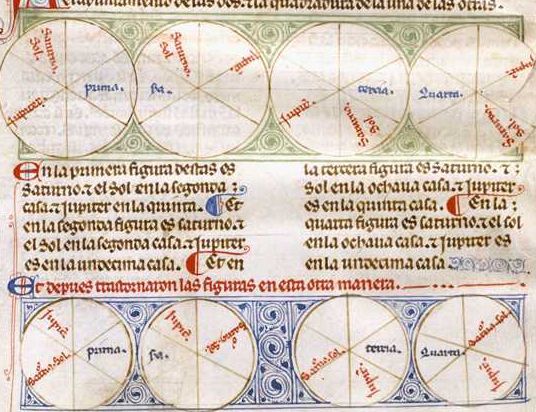 El ayuntamiento de las dos. ⁊ la quadradura de la una de las otras.
Saturno.
Sol.
Jupiter.
prima.
Saturno.
Sol.
Jupit̃.
sẽa.
Jupiter.
Saturno.
Sol.
tercia.
Saturno.
Sol.
Quarta.
En la primera figura destas es
Saturno. ⁊ el Sol en la segonda
casa ⁊ Jupiter en la quinta. Et
en la segonda figura es saturno. ⁊
el sol en la segonda casa. ⁊ Jupiter
es en la undecima casa. Et en
la tercera figura es Saturno. ⁊
Sol en la ochaua casa. ⁊ Jupiter
es en la quinta casa. En la
quarta figura es saturno. ⁊ el sol
en la ochaua casa. ⁊ Jupiter es
en la undecima casa.
Et depues trastornaron las figuras en esta otra manera.
Jupit̃.
Satño. Sol.
prima.
Jupit̃.
sẽa.
Satño. Sol.
Jupit̃.
tercia.
Satño. Sol.
Jupit̃.
Quarta.